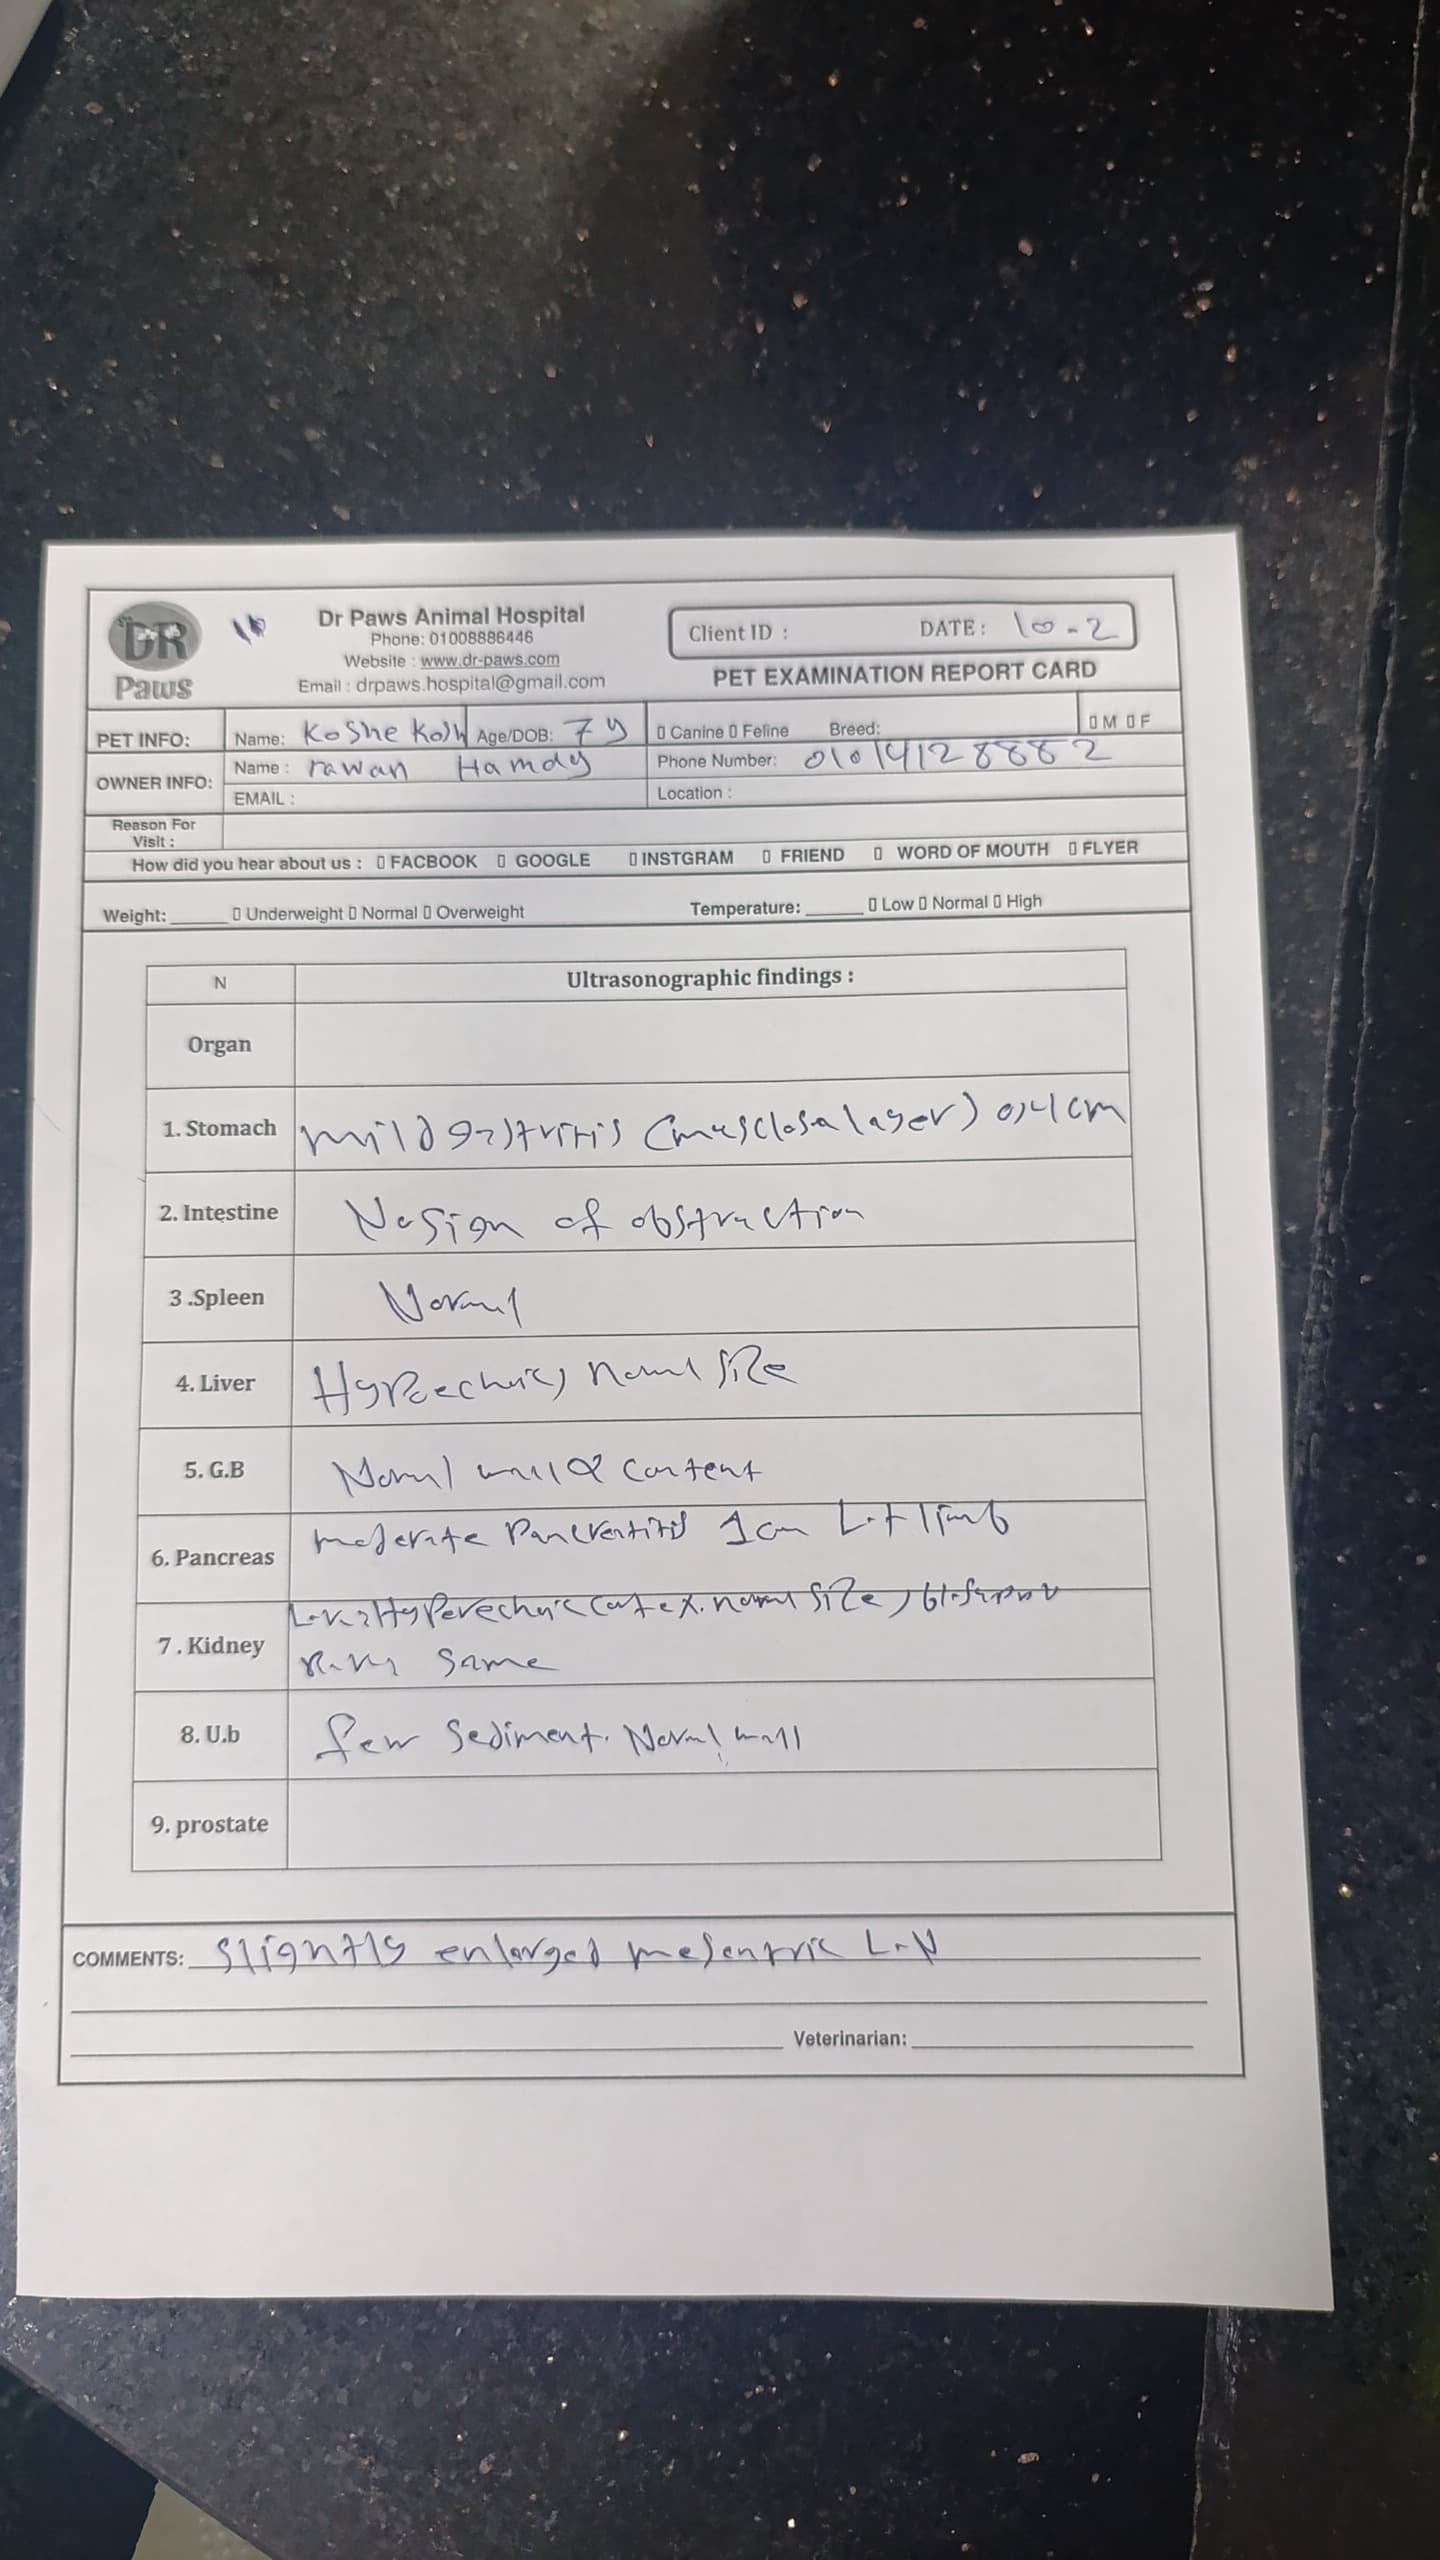 DR
Paws
Dr Paws Animal Hospital
Phone: 01008886446
Website : www.dr-paws.com
Email : drpaws.hospital@gmail.com
Client ID : DATE: 10-2
PET EXAMINATION REPORT CARD
PET INFO: Name: Koshe Kosh Age/DOB: 7 y Canine Feline Breed: M F
OWNER INFO: Name : rawan Hamdy Phone Number: 01014128882
EMAIL : Location :
Reason For
Visit :
How did you hear about us : FACBOOK GOOGLE INSTGRAM FRIEND WORD OF MOUTH FLYER
Weight: Underweight Normal Overweight Temperature: Low Normal High
N Ultrasonographic findings :
Organ
1. Stomach mild gastritis (musclosa layer) 0,4 cm
2. Intestine No sign of obstruction
3 .Spleen Normal
4. Liver normal size
5. G.B Normal wall & content
6. Pancreas moderate Pancreatitis 1 cm Lt limb
7 . Kidney L.K: Hyperechoic cortex. normal size,
R.K: same
8. U.b few sediment. Normal wall
9. prostate
COMMENTS: slightly enlarged mesentric L.N
Veterinarian: